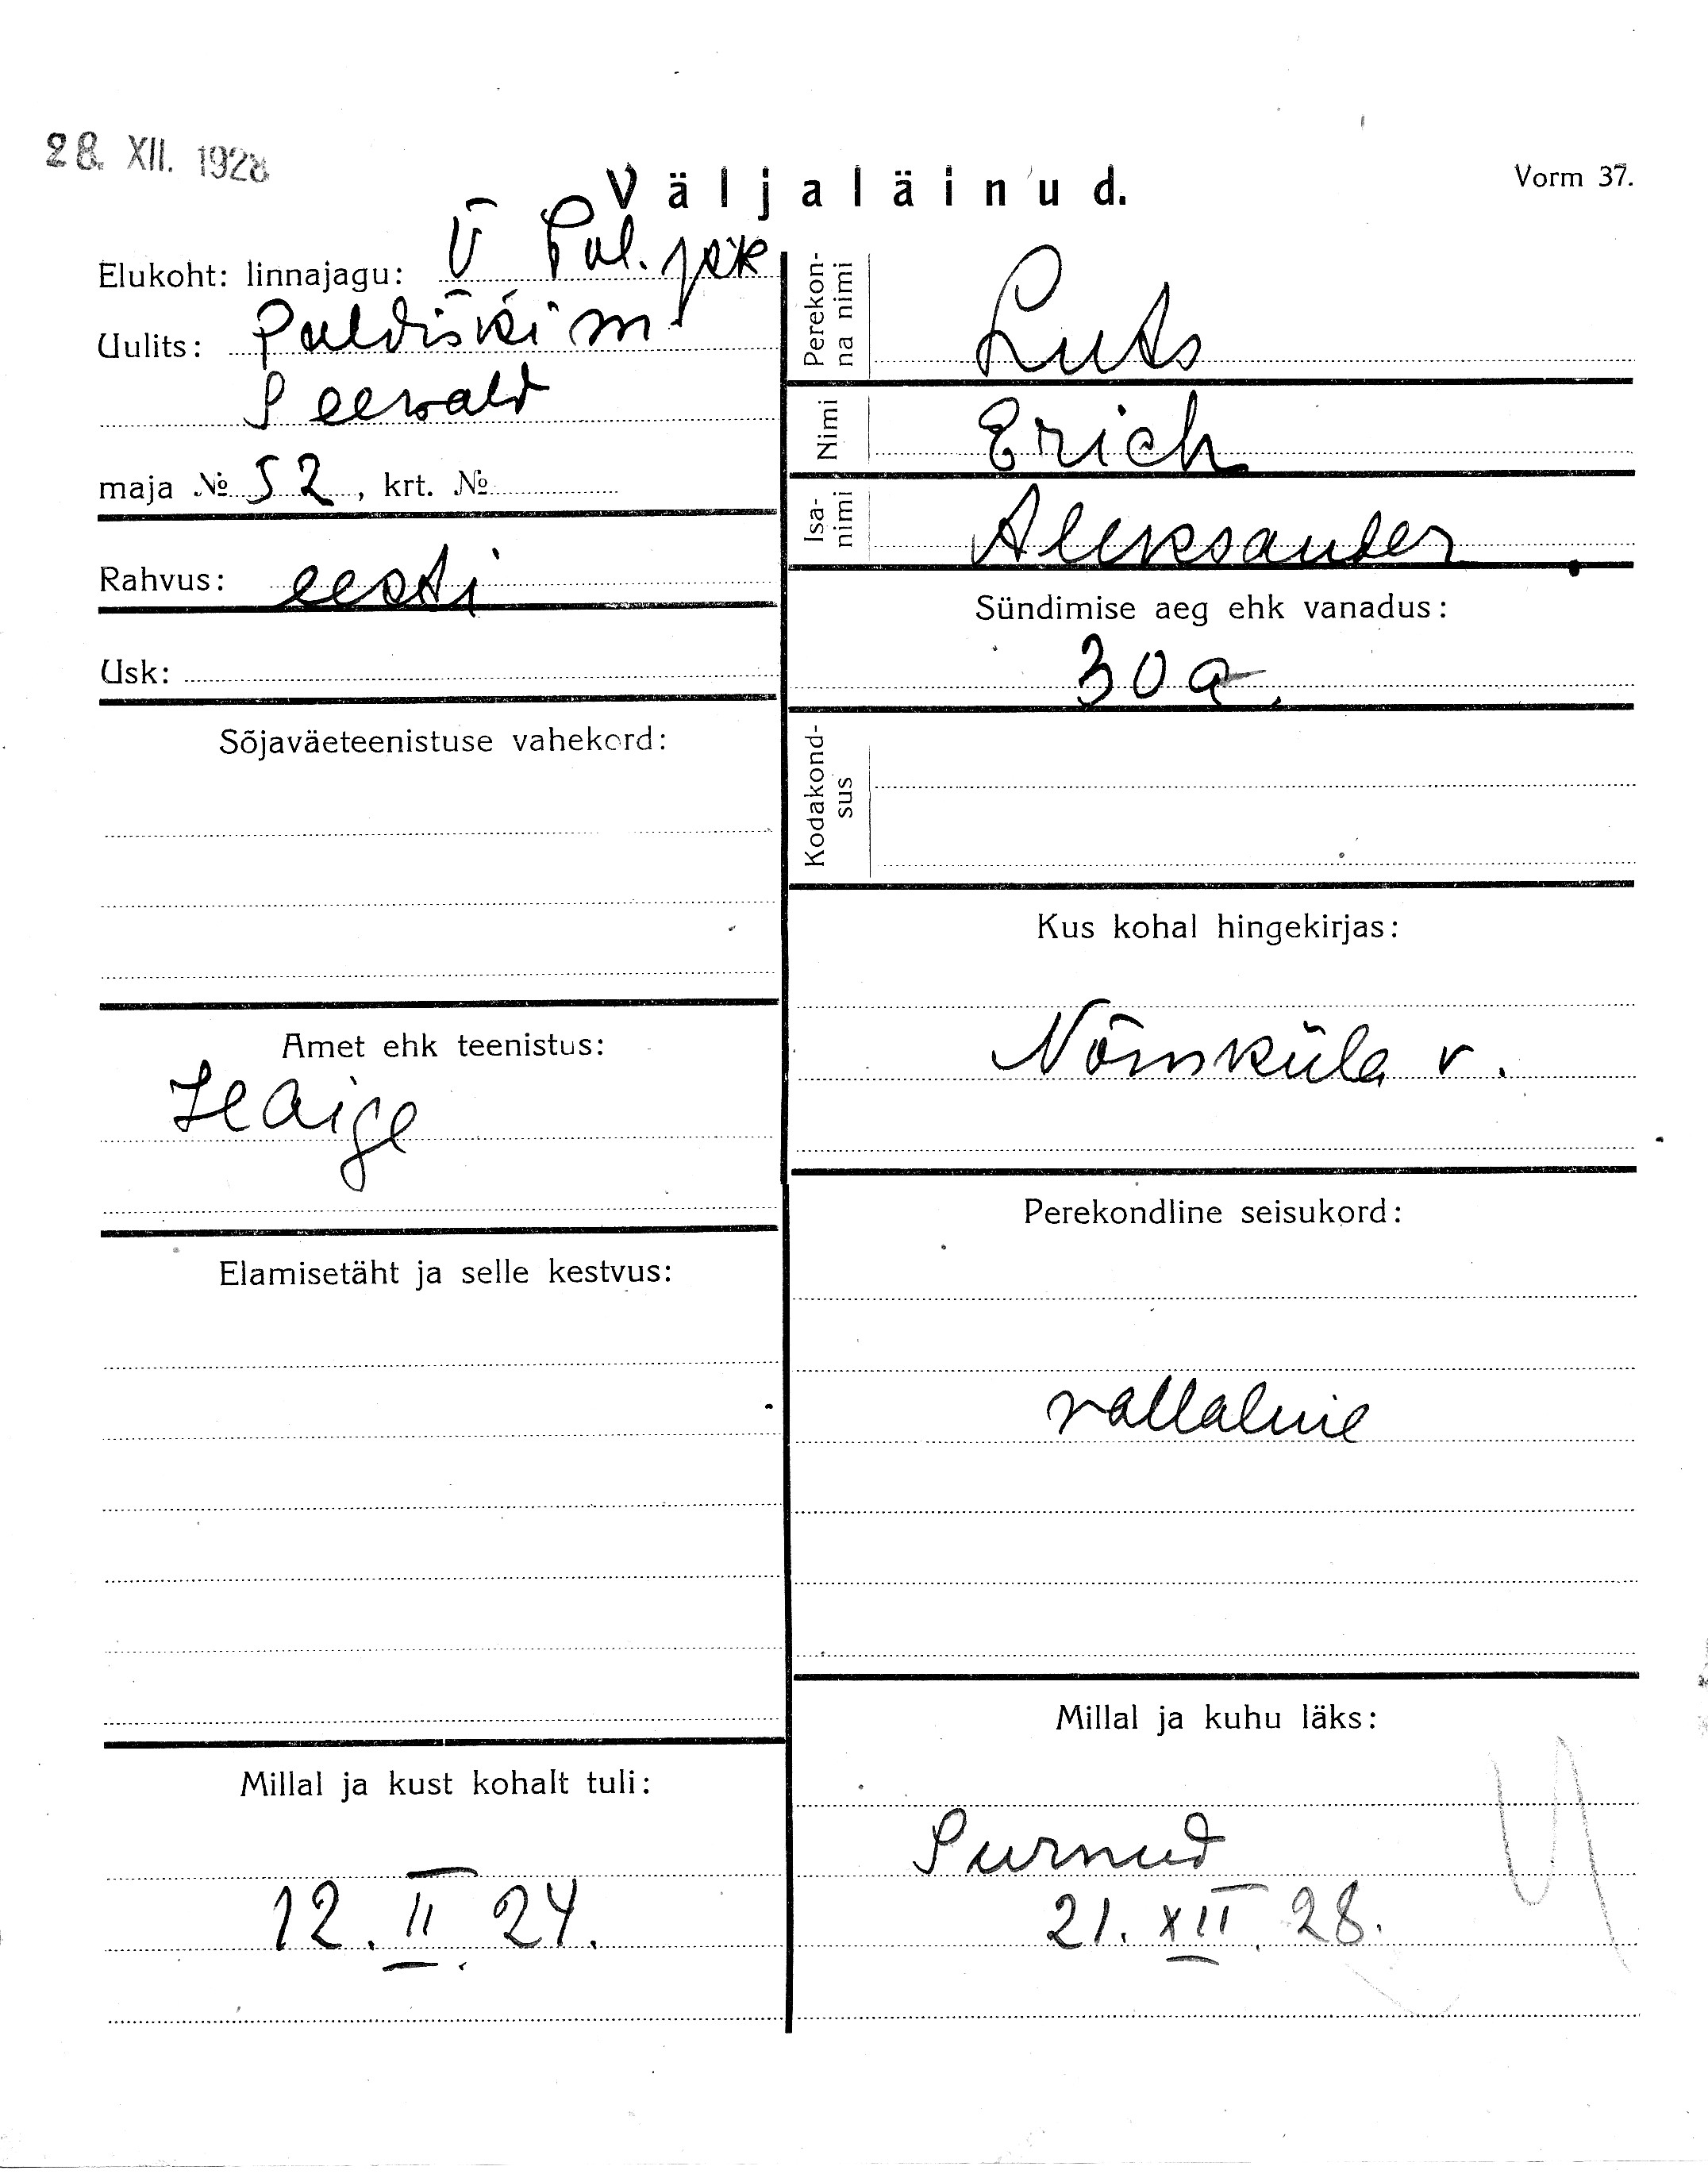 28. XII. 1928
Väljaläinud.
Vorm 37.
Elukoht: linnajagu: V Pol. jsk
Uulits: Paldiski m
Seewald
maja № 52, krt. №
Rahvus: eesti
Usk:
Sõjaväeteenistuse vahekord:
Amet ehk teenistus:
Haige
Elamisetäht ja selle kestvus:
Millal ja kust kohalt tuli:
12. II. 24.
Perekon-
na nimi
Luts
Nimi
Erich
Isa-
nimi
Aleksander
Sündimise aeg ehk vanadus:
30 a.
Kodakond-
sus
Kus kohal hingekirjas:
Nõmküla v.
Perekondline seisukord:
vallaline
Millal ja kuhu läks:
Surnud
21. XII. 28.